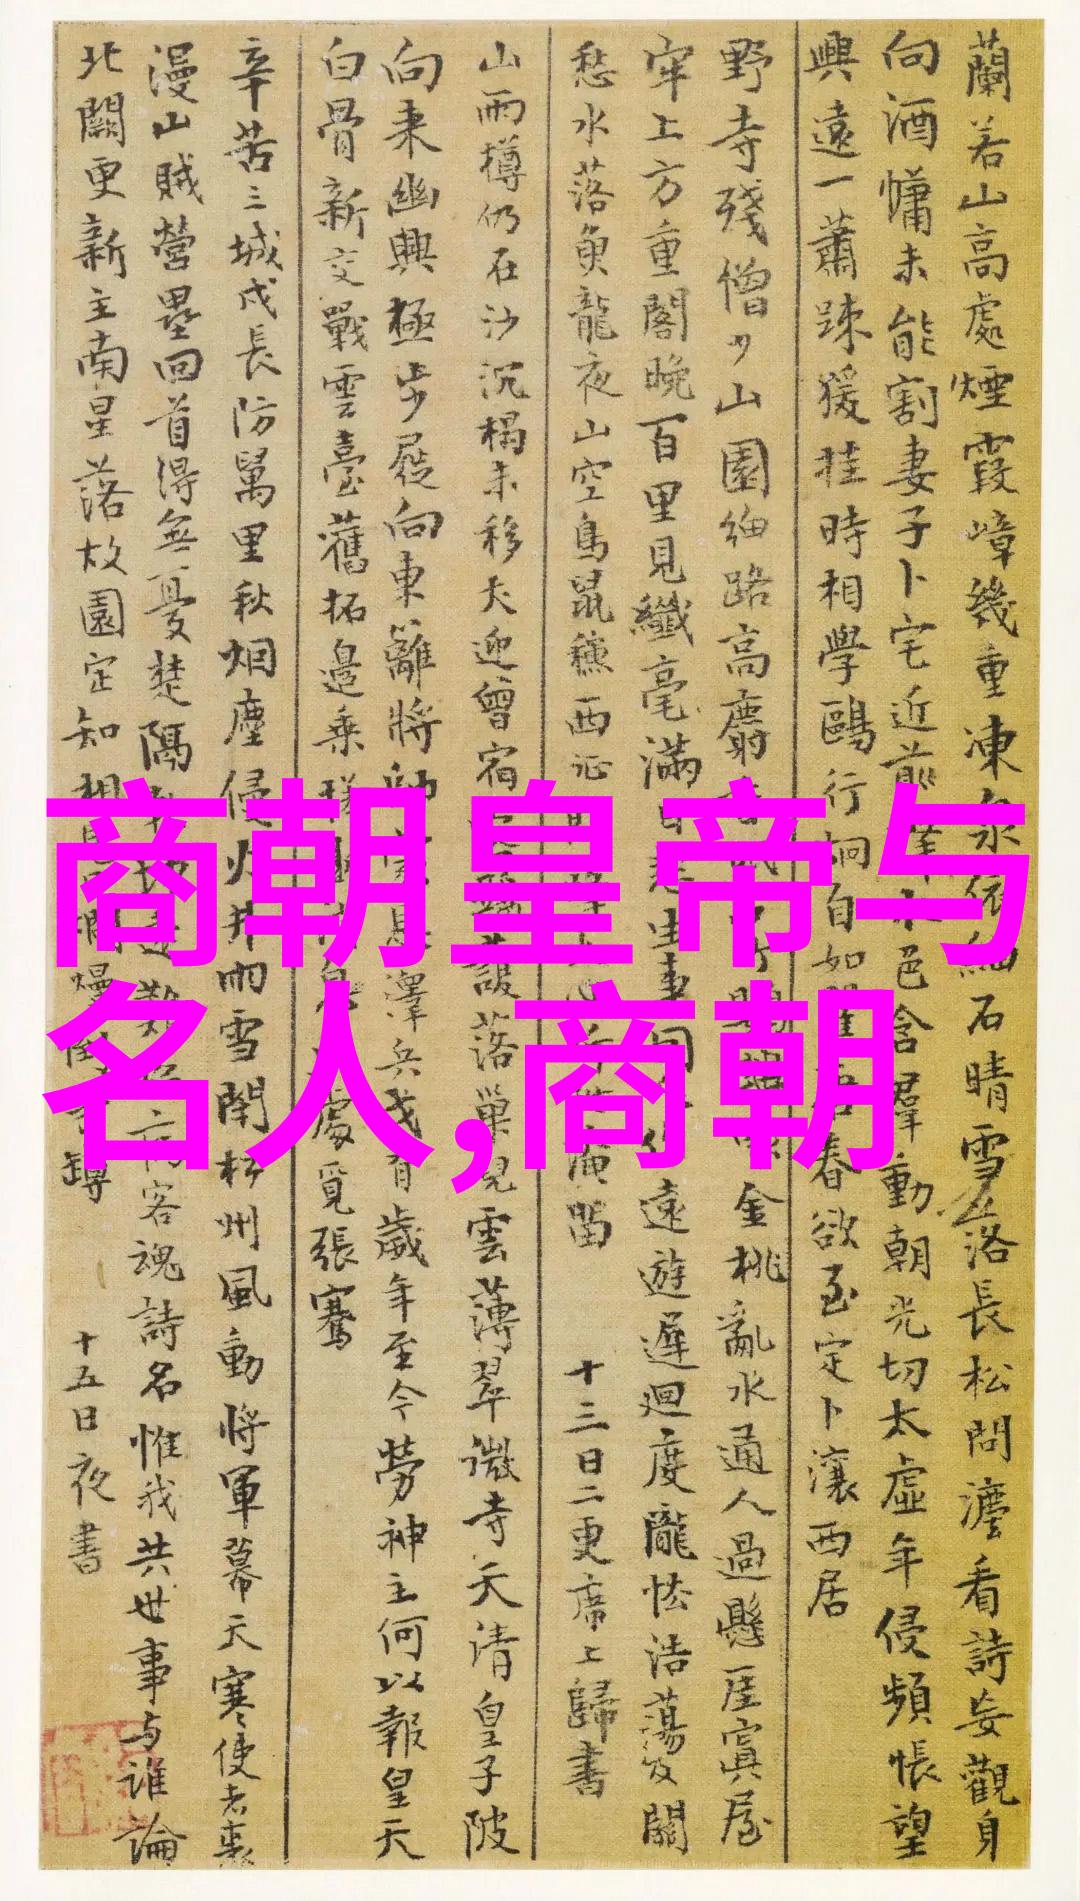 蘭若山高處煙霞嶂幾重凍泉依細石晴雪落長松問灋看詩妄觀身
向酒慵未能割妻子卜宅近前峰水色含羣動朝光切太虛年侵頻悵望
興遠一蕭踈猨挂時相學鷗行炯自如春欲至定卜瀼西居
野寺殘僧少山園細路高麝金桃亂水通人過懸崖置屋
牢上方重閣晚百里見纖毫滿生事遠遊遲迴度隴怯浩蕩及關
愁水落魚龍夜山空鳥鼠秋西征留 十三日二更席上歸書
山雨樽仍在沙沉榻未移犬迎曾宿護落巢兒雲薄翠微寺天清皇子陂
向來幽興極步屧向東籬將澤兵戈有歲年至今勞神主何以報皇天
白骨新交戰雲臺舊拓邊乘處覓張騫
辛苦三城戍長防萬里秋烟塵侵火井雨雪閉松州風動將軍幕天寒使者裘
漫山賊營壘回首得無憂楚隔客魂詩名惟我共世事与誰論
北闕更新主南星落故園定知相罇 十五日夜書
商朝皇帝与
名人,商朝